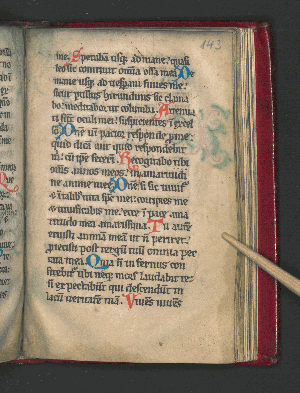 143
me. Sperabā usq; ad mane: quasi
leo sic contriuit omīa ossa mea. De
mane usq; ad uesperā finies me:
sicut pullus hirundinis sic clama
bo: meditabor ut columba. Attenua
ti sūt oculi mei: suspicientes ī excel
sū. Dñe uī patior responde pro me:
quid dicā aut quid respondebit
m: cū ipse fecerī. Recogitabo tibi
om̄s annos meos: in amaritudi
ne anime mee. Dñe si sic uiuit᷑
& ī talib᷒ uita sp̄c mei: corripies me
& uiuificabis me. ecce ī pace ama
ritudo mea amarissima. Tu autē
eruisti animā meā ut ñ periret:
proiecisti post tergū tuū omnia pec
cata mea. Quia ñ infernus con
fitebit᷑ tibi neq; mors laudabit te:
ñ expectabūt qui descendūt in
lacū ueritatē tuā. Viuēs uiuēs